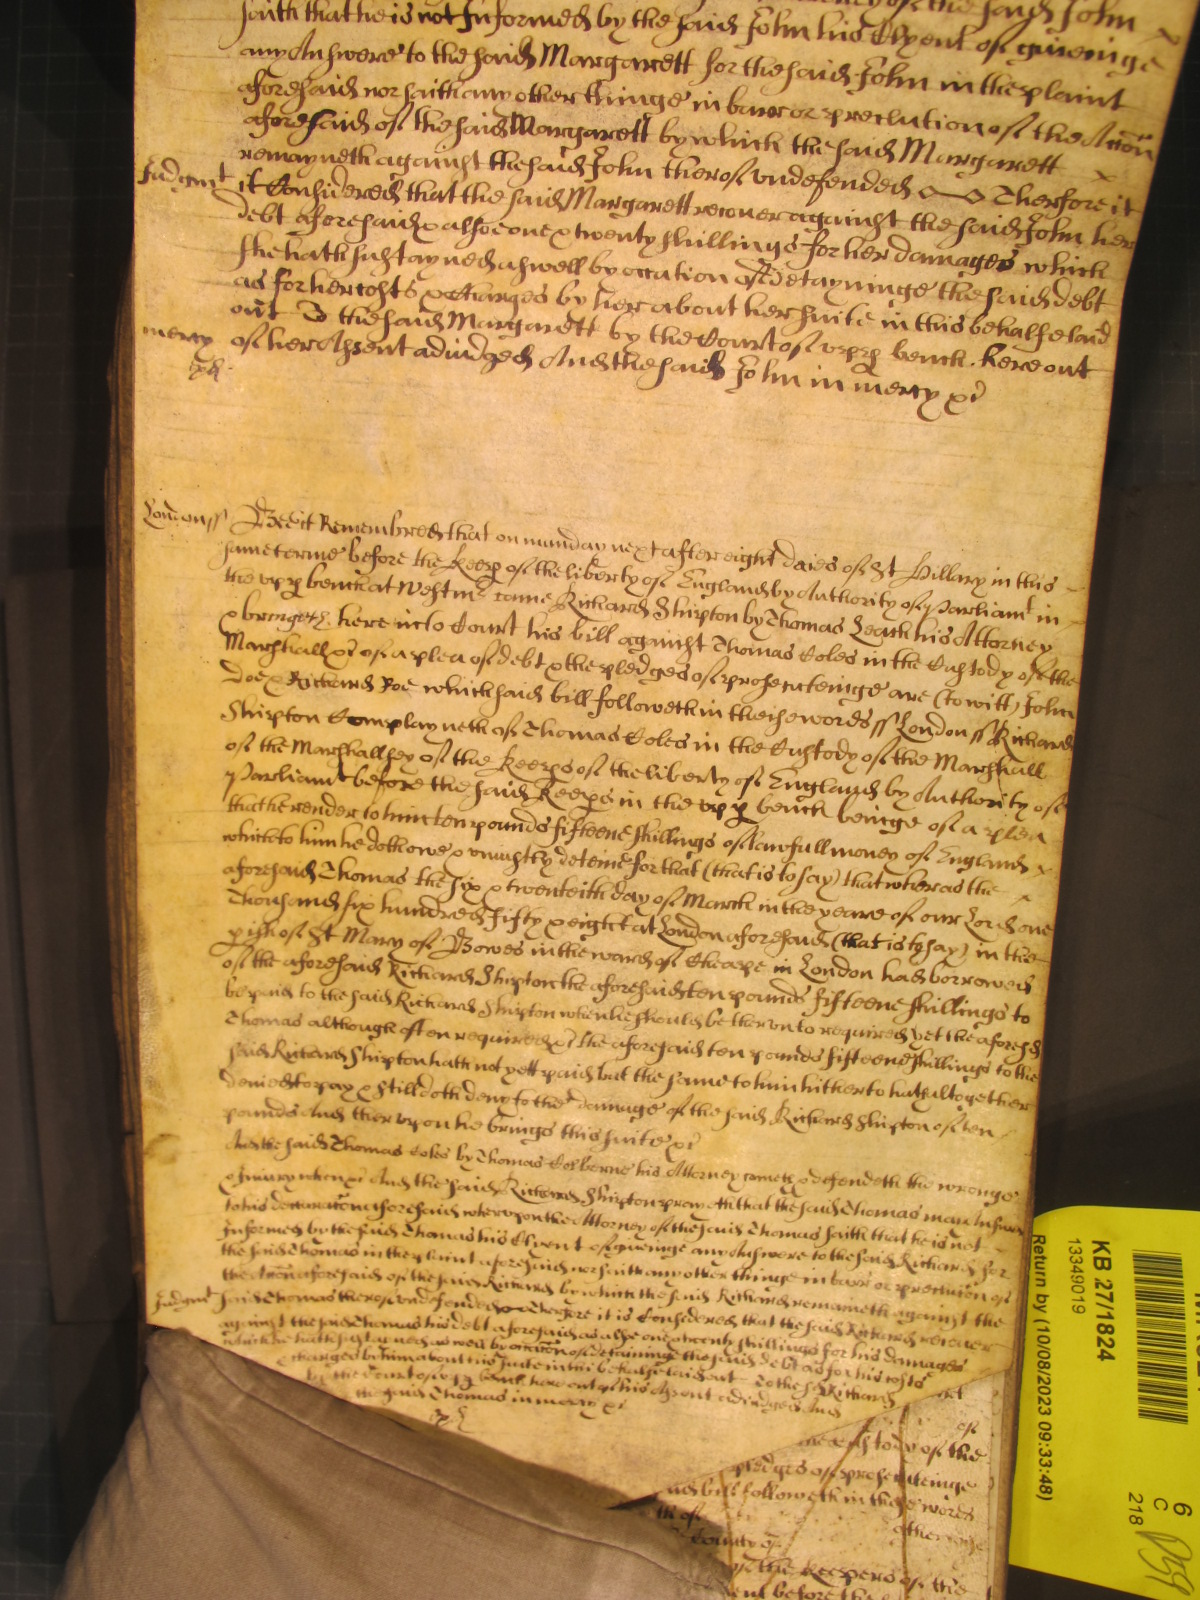 saith that he is not Informed by the said John his Clyent of giueinge
any Answere to the said Margarett for the said John in the plaint
aforesaid nor saith any other thinge in barr or preclution of the Accon
aforesaid of the said Margarett by which the said Margarett
remayneth against the said John therof vndefended Therfore it
Judgmt
it Considered that the said Margarett recouer against the said John her
debt aforesaid & alsoe one & twenty shillings for her damages which
she hath sustayned aswell by occation of detayninge the said debt
as for her costs & charges by her about her suite in this behalfe laid
out To the said Margarett by the Court of vpp bench here out
mercy
of her Assent adiudged And the said John in mercy &c
London ss
Bee it Remembred that on munday next after eight daies of St Hillary in this
same terme before the keeps of the liberty of England by Authority of Parliamt in
the vpp bench at Westmr came Richard Shipton by Thomas Leach his Attorney
& bringeth here into Court his bill against Thomas Coles in the Custody of the
Marshall &c of a plea of debt & the pledges of prosecuteinge are (to witt) John
Doe & Richard Roe which said bill followeth in theise words ss London ss Richard
Shipton Complayneth of Thomas Coles in the Custody of the Marshall
of the Marshallsey of the keeps of the liberty of England by Authority of
Parliamt before the said Keeps in the vpp bench beinge of a plea
that he render to him ten pounds fifteene shillings of lawfull money of England
which to him he doth owe & vniustly deteine for that (that is to say) that wheras the
aforesaid Thomas the six & twentieth day of March in the yeare of our Lord one
Thousand six hundred fifty & eight at London aforesaid (that is to say) in the
pish of St Mary of Bowes in the ward of Cheape in London had borrowed
of the aforesaid Richard Shipton the aforesaid ten pounds fifteene shillings to
be paid to the said Richard Shipton when he should be therunto required yet the aforesd
Thomas although often required &c the aforesaid ten pounds fifteene shillings to the
said Richard Shipton hath not yett paid but the same to him hitherto hath altogether
denied to pay & still doth deny to the damage of the said Richard Shipton of ten
pounds And thervpon he brings this suite &c
And the said Thomas Coles by Thomas Colborne his Attorney cometh & defendeth the wronge
& Iniury when &c And the said Richard Shipton prayeth that the said Thomas may Answere
to his declaration aforesaid wherevpon the Attorney of the said Thomas saith that he is not
Informed by the said Thomas his Clyent of giueinge any Answere to the said Richard for
the said Thomas in the plaint aforesaid nor saith any other thinge in barr or preclution of
the Accon aforesaid of the said Richard by which the said Richard remaineth against the
Judgmt
said Thomas therof vndefended Therfore it is Considered that the said Richard recouer
against the said Thomas his debt aforesaid as alsoe one & twenty shillings for his damages
which he hath sustayned as well by occation of detaininge the said debt as for his costs
& charges by him about his suite in this behalfe laid out To the sd Richard
by the Court of vpp bench here out of his Assent adiudged And
the said Thomas in mercy &c
Custody of the
pledges of prosecuteinge
said bill followeth in these words
otherwise
County of
of the keepers of the
before the
KB 27/1824
13349019
Return by (10/08/2023 09:33:48)
6
C
218